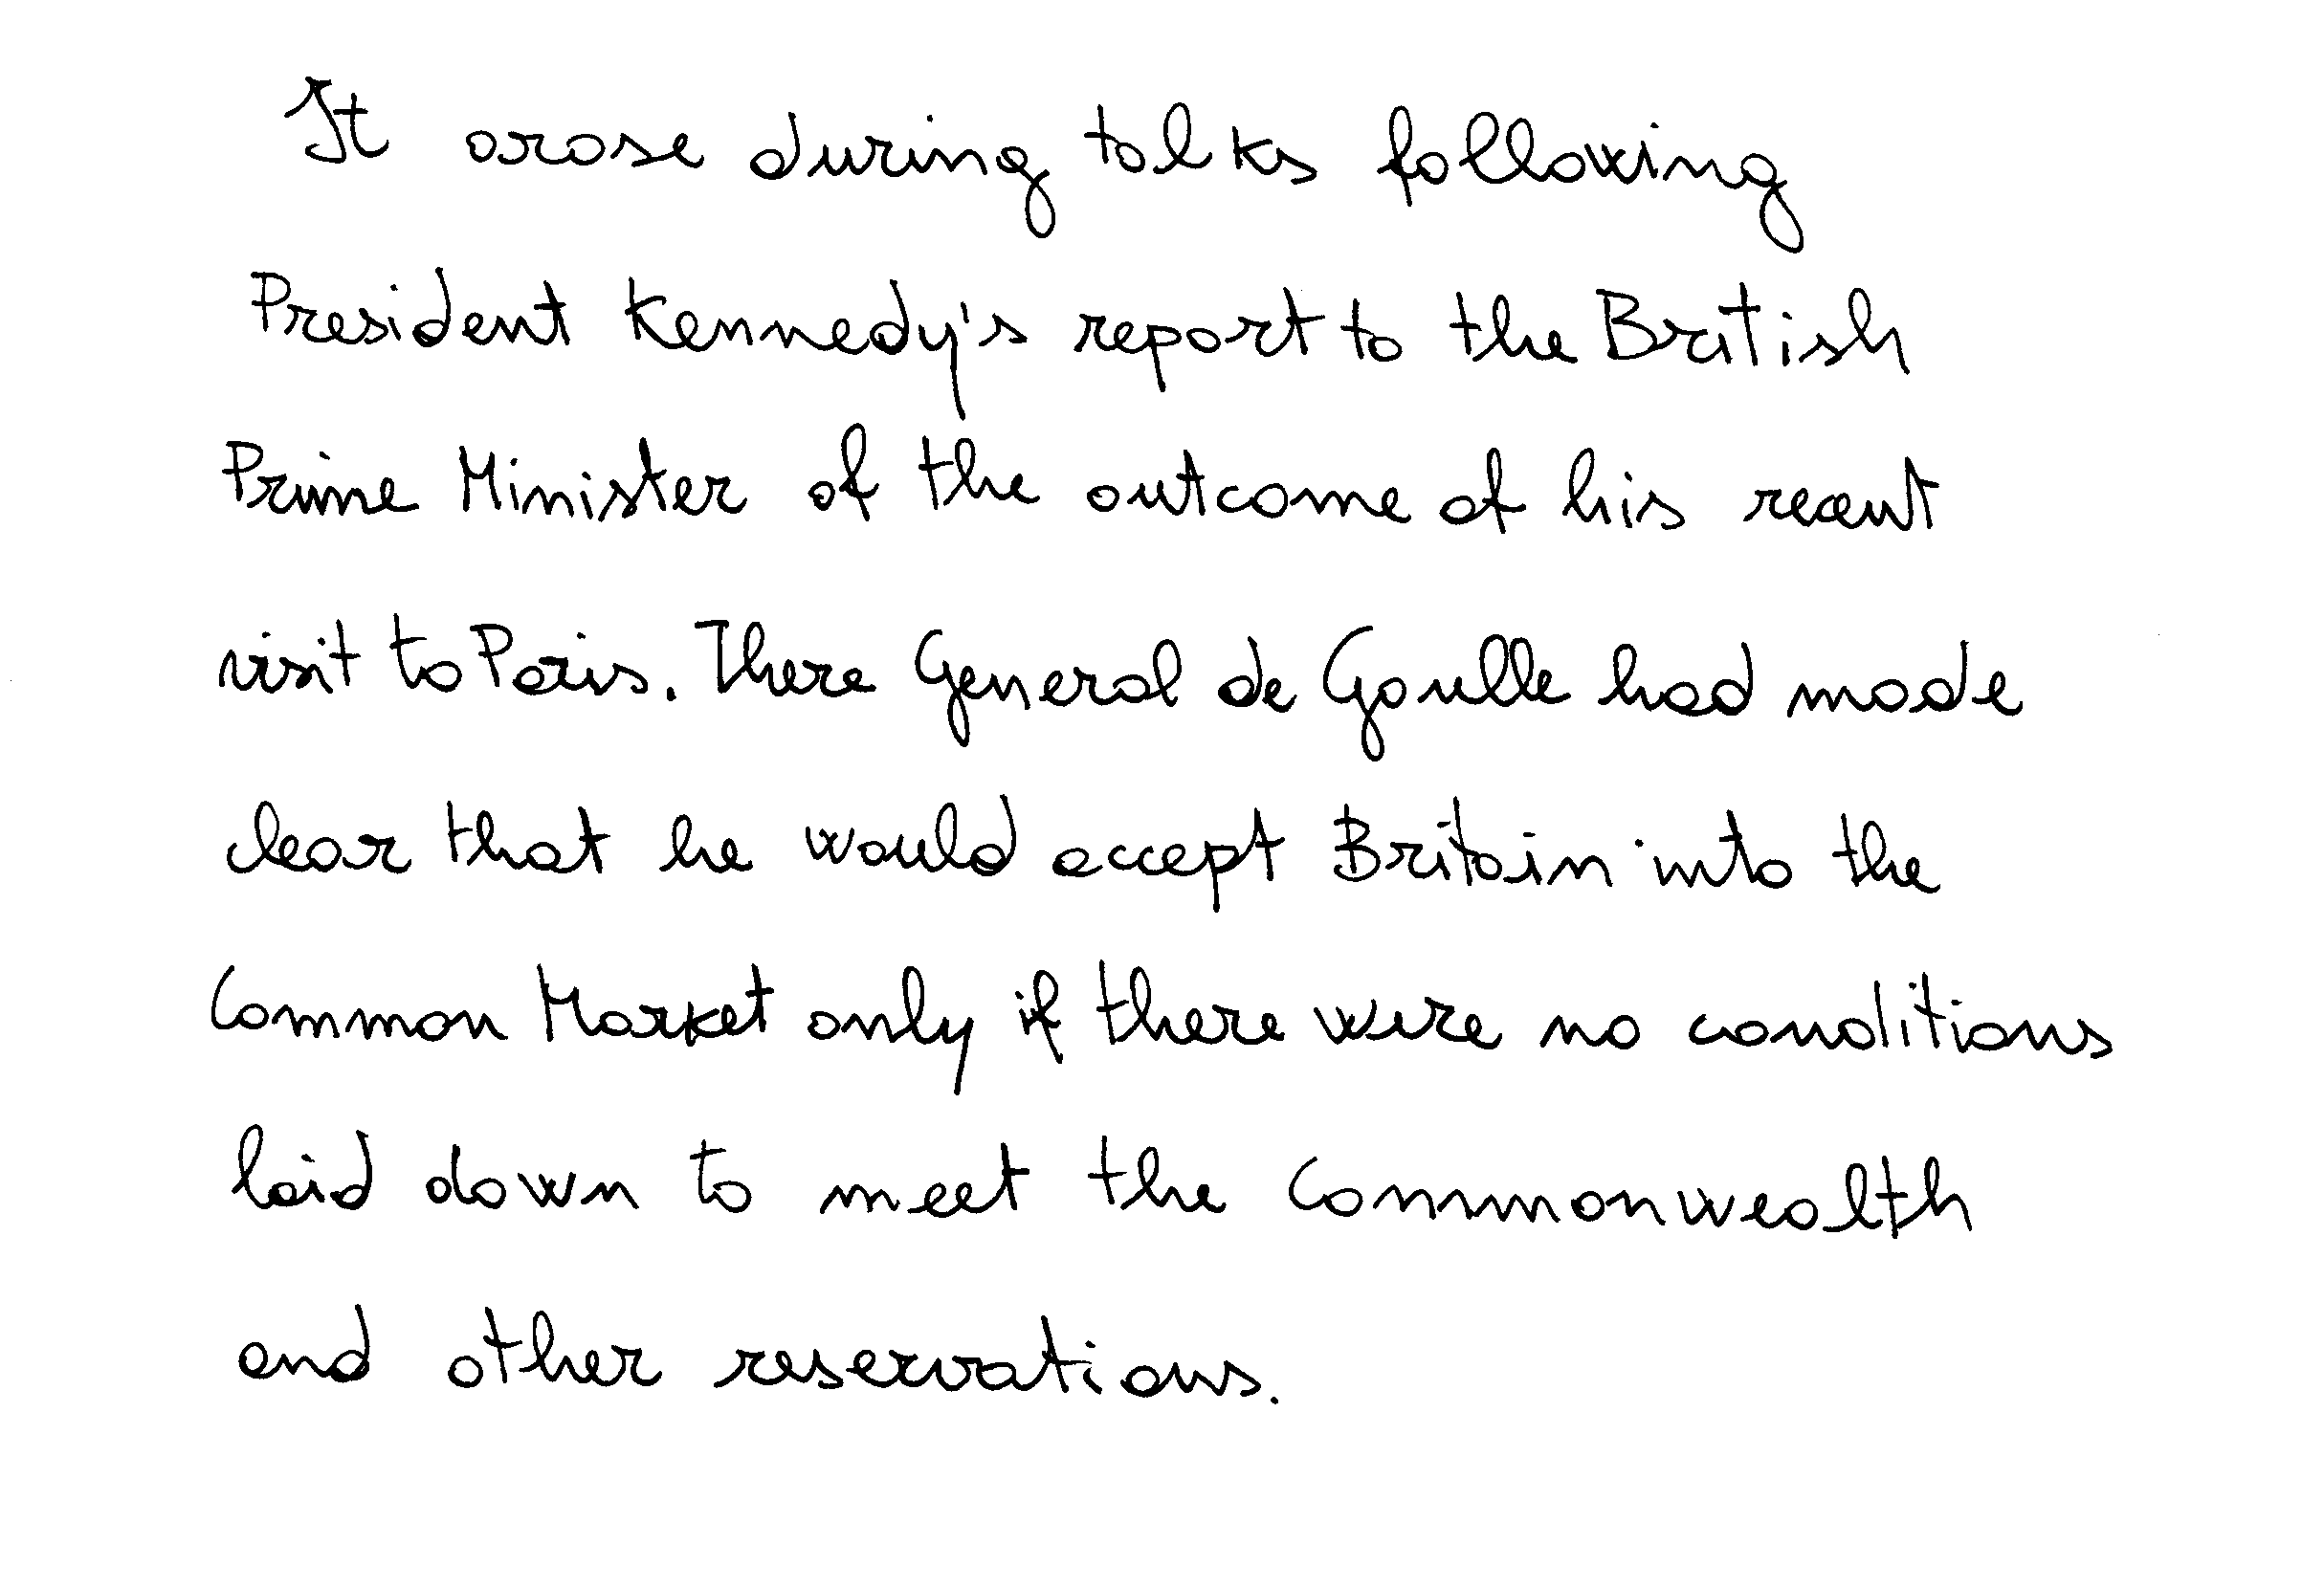 It arose during talks following
President Kennedy's report to the British
Prime Minister of the outcome of his recent
visit to Paris. There General de Gaulle had made
clear that he would accept Britain into the
Common Market only if there were no conditions
laid down to meet the Commonwealth
and other reservations.